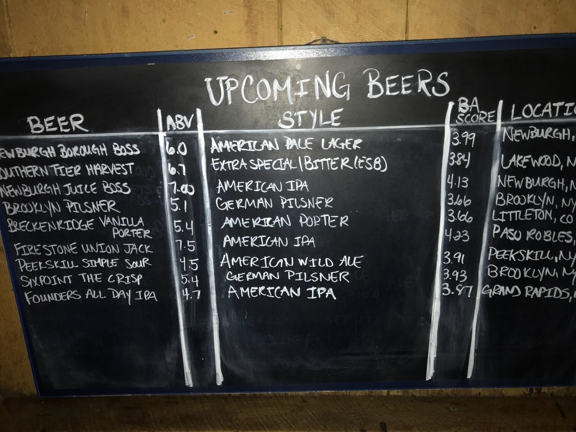 UPCOMING BEERS
BEER ABV STYLE BA SCORE LOCATIO
EWBURGH BOROUGH BOSS 6.0 AMERICAN PALE LAGER 3.99 NEWBURGH,
OUTHERN TIER HARVEST 6.7 EXTRA SPECIAL/BITTER (ESB) 3.84 LAKEWOOD, N
NEWBURGH JUICE BOSS 7.00 AMERICAN IPA 4.13 NEWBURGH, N
BROOKLYN PILSNER 5.1 GERMAN PILSNER 3.66 BROOKLYN, NY
BRECKENRIDGE VANILLA PORTER 5.4 AMERICAN PORTER 3.66 LITTLETON, CO
FIRESTONE UNION JACK 7.5 AMERICAN IPA 4.23 PASO ROBLES,
PEEKSKILL SIMPLE SOUR 4.5 AMERICAN WILD ALE 3.91 PEEKSKILL, NY
SIXPOINT THE CRISP 5.4 GERMAN PILSNER 3.93 BROOKLYN, N
FOUNDERS ALL DAY IPA 4.7 AMERICAN IPA 3.87 GRAND RAPIDS,